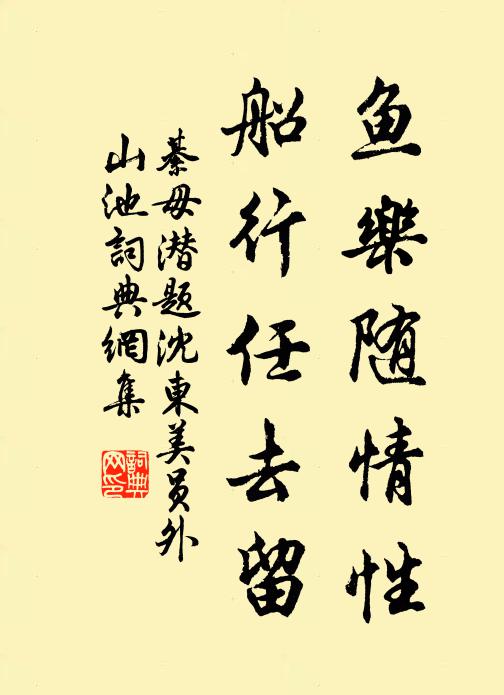 鱼樂随情性
船行任去留
綦毋潜题沈東美員外
山池詞典網集
詞典网印